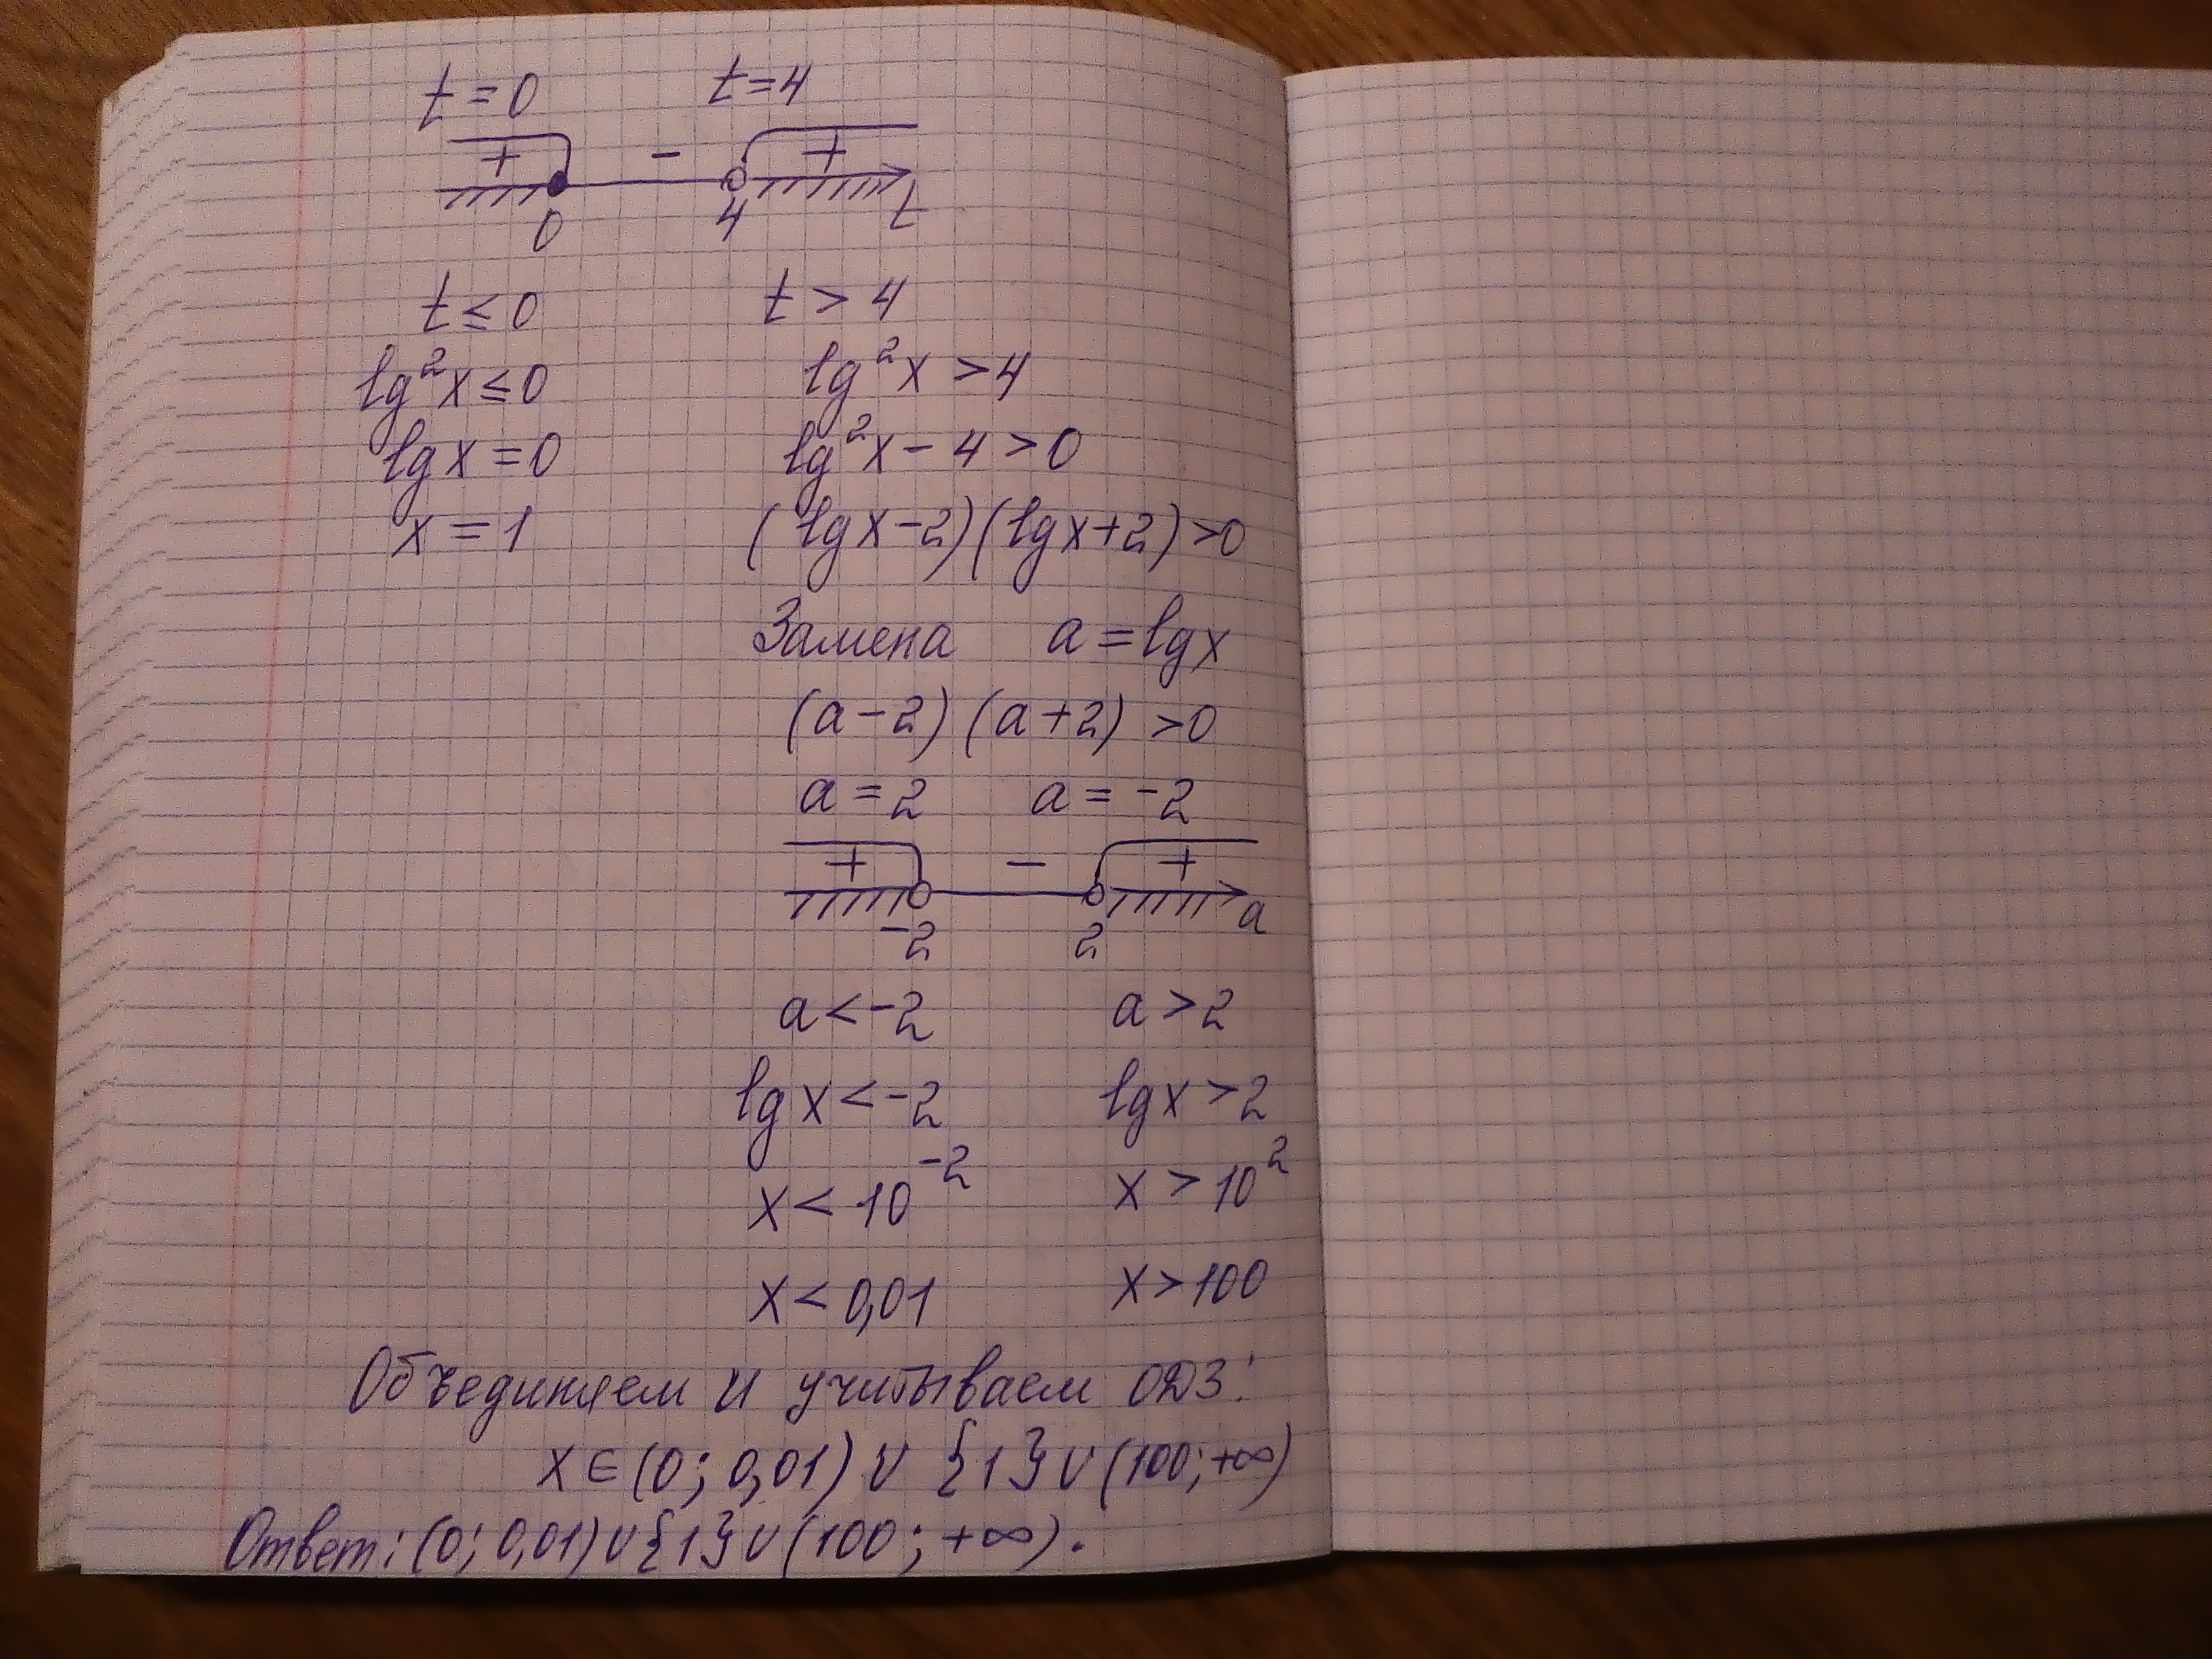 t=0 t=4
+ - +
0 4 t
t ≤ 0 t > 4
lg²x ≤ 0 lg²x > 4
lgx = 0 lg²x - 4 > 0
x = 1 (lgx-2)(lgx+2)>0
Замена a = lgx
(a-2)(a+2) >0
a = 2 a = -2
+ - +
-2 2 a
a < -2 a > 2
lgx < -2 lgx > 2
x < 10⁻² x > 10²
x < 0,01 x > 100
Объединяем и учитываем ОДЗ:
x ∈ (0; 0,01) ∪ {1} ∪ (100; +∞)
Ответ: (0; 0,01) ∪ {1} ∪ (100; +∞).